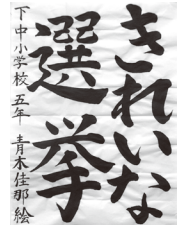 きれいな
選挙
下中小学校 五年 青木佳那絵